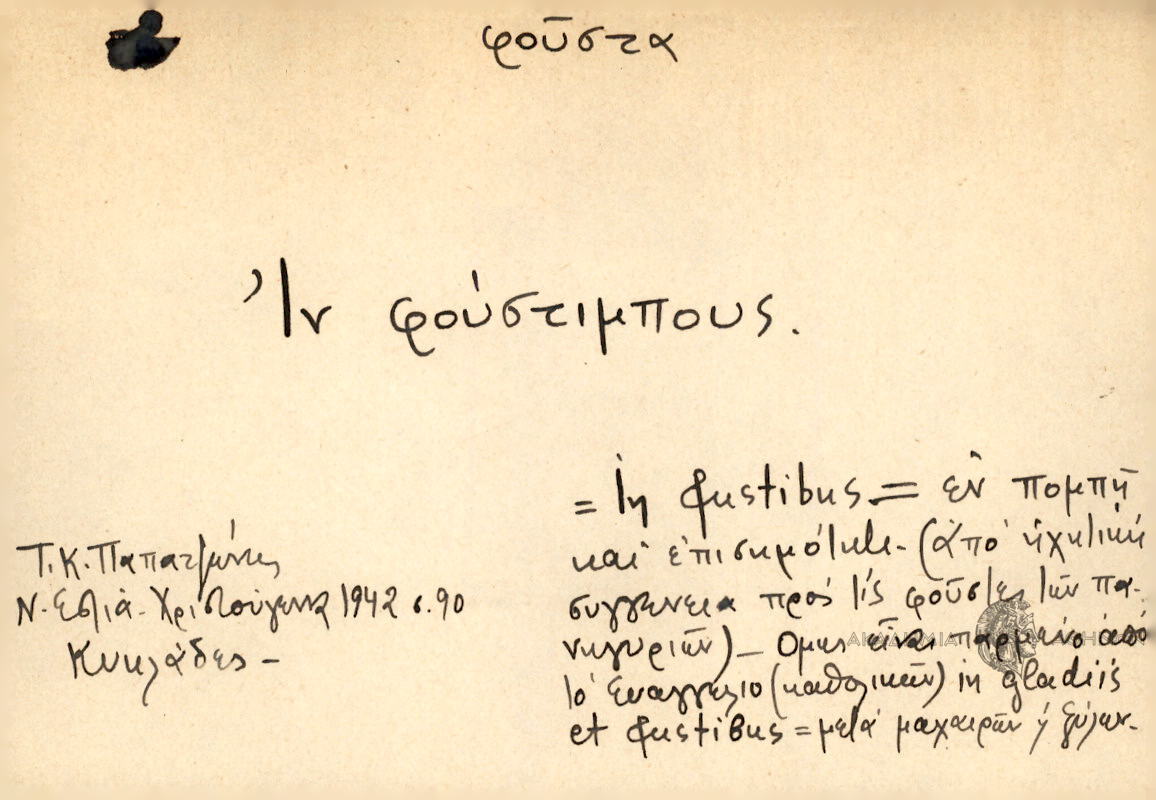 φοῦστα
Ἰν φούστιμπους.
= In fustibus = ἐν πομπῇ
καὶ ἐπισημότητι. (ἀπὸ ἠχητικὴ
συγγένεια πρὸς τὶς φοῦστες τῶν πα-
νηγυριῶν) – Ομως εἶναι παρμένο ἀπὸ
τὸ Εὐαγγέλιο (καθολικῶν) in gladiis
et fustibus = μετὰ μαχαιρῶν ἢ ξύλων.
Τ. Κ. Παπατζώνης
Ν. Εστία. Χριστούγεννα 1942 σ. 90
Κυκλάδες –
ΑΚΑΔΗΜΙΑ